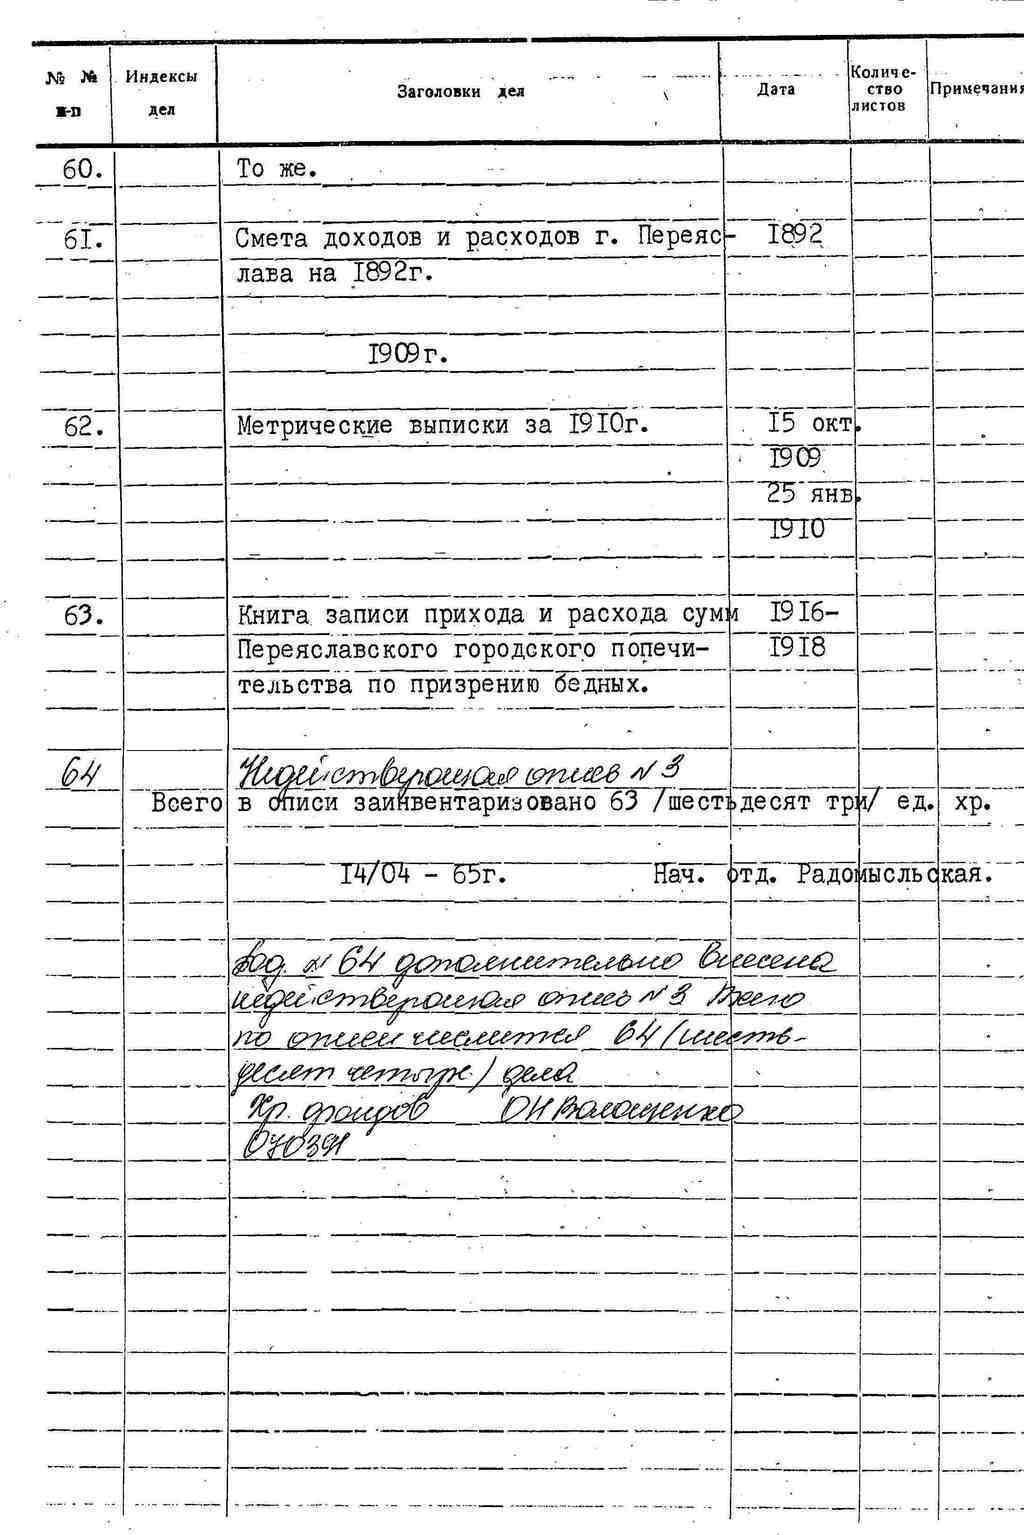 № № п-п Индексы дел Заголовки дел Дата Количество листов Примечания
60. То же.
61. Смета доходов и расходов г. Переяс- 1892
лава на 1892г.
1909г.
62. Метрические выписки за 1910г. 15 окт.
1909
25 янв.
1910
63. Книга записи прихода и расхода сумм 1916-
Переяславского городского попечи- 1918
тельства по призрению бедных.
64 Недействующая опись № 3
Всего в описи заинвентаризовано 63 /шестьдесят три/ ед. хр.
14/04 - 65г. Нач. отд. Радомысльская.
Под № 64 дополнительно внесена
недействующая опись № 3 Всего
по описи числится 64 (шесть-
десят четыре) дела
Хр. фондов ОН Волощенко
070391